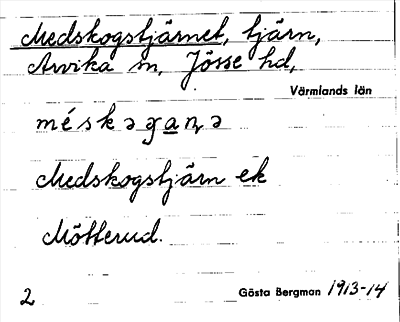 Medskogstjärnet, tjärn,
Arvika sn, Jösse hd,
Värmlands län
méskəgaɳə
Medskogstjärn ek
Mötterud.
2 Gösta Bergman 1913-14